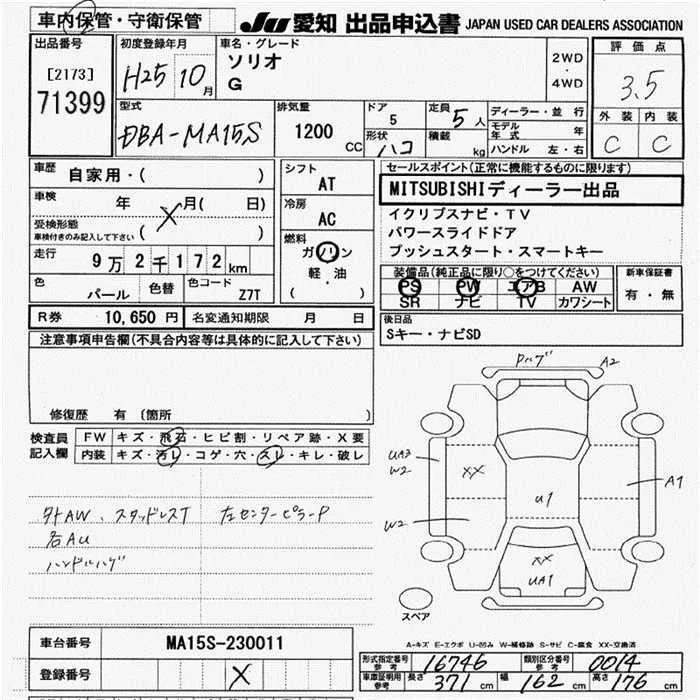 車内保管・守衛保管
JU 愛知 出品申込書 JAPAN USED CAR DEALERS ASSOCIATION
出品番号
[2173]
71399
初度登録年月
H25 10月
車名・グレード
ソリオ
G
2WD
・
4WD
評価点
3.5
外装 内装
C C
型式
DBA-MA15S
排気量
1200 CC
ドア
5
形状
ハコ
定員
5人
積載
kg
ディーラー・並行
モデル年式 年
ハンドル 左・右
車歴
自家用・( )
車検
年 X 月( 日)
受検形態
車検付きのみ記入して下さい ( )
走行
9万2千172km
色
パール
色替
色コード
Z7T
シフト
AT
冷房
AC
燃料
ガソリン
軽・油
( )
セールスポイント(正常に機能するものに限ります)
MITSUBISHIディーラー出品
イクリプスナビ・TV
パワースライドドア
プッシュスタート・スマートキー
装備品(純正品に限り○をつけてください)
PS PW エアB AW
SR ナビ TV カワシート
新車保証書
有・無
R券 10,650円 名変通知期限 月 日
後日品
Sキー・ナビSD
注意事項申告欄(不具合内容等は具体的に記入して下さい)
修復歴 有 〔箇所 〕
検査員記入欄
FW キズ・飛石・ヒビ割・リペア跡・X要
内装 キズ・汚レ・コゲ・穴・スレ・キレ・破レ
外AW、スタッドレスT 左センターピラーP
各AU
ハンドルハゲ
Pハゲ A2
UA3
W2
XX
A1
U1
W2
XX
UA1
スペア
A-キズ E-エクボ U-凹み W-補修跡 S-サビ C-腐食 XX-交換済
車台番号 MA15S-230011
登録番号 X
形式指定番号 参考 16746 類別区分番号 参考 0014
車庫証明用 参考 長さ 371cm 幅 162cm 高さ 176cm